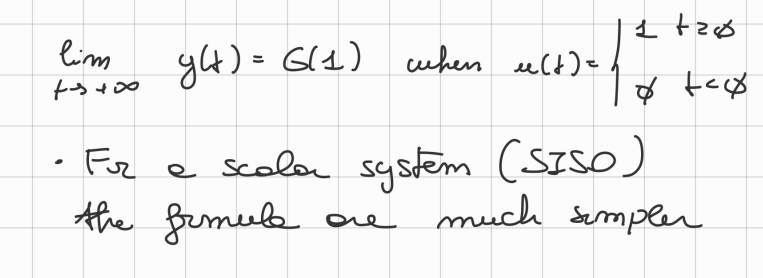 lim t→+∞ y(t) = G(1) when u(t) = | 1 t≥0
| 0 t<0
• For a scalar system (SISO)
the formula are much simpler